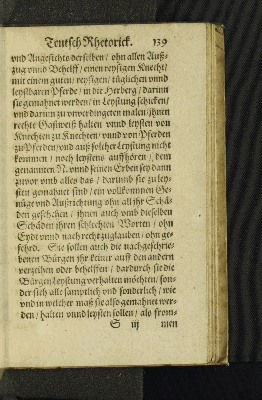 Teutsch Rhetorick. 139
vnd Angesichts derselben / ohn allen Auß⸗
zug vnnd Behelff / einen reysigen Knecht /
mit einem guten / reysigen / tüglichen vnnd
leystbaren Pferde / in die Herberg / darinn
sie gemahnet werden / in Leystung schicken /
vnd darinn zu vnverdingeten malen / jhnen
rechte Gastweiß halten vnnd leysten von
Knechten zu Knechten / vnnd von Pferden
zu Pferden / vnd auß solcher Leystung nicht
kommen / noch leystens auffhören / dem
genannten N. vnnd seinen Erben sey dann
zuvor vmb alles das / darumb sie zu ley⸗
sten gemahnet sind / ein vollkommen Ge⸗
nüge vnd Außrichtung ohn all jhr Schä⸗
den geschehen / jhnen auch vmb dieselben
Schäden jhren schlechten Worten / ohn
Eydt vnnd rechtzuglauben / ohn ge⸗
ferd. Sie sollen auch die nachgeschrie⸗
benen Bürgen jhr keiner auß den andern
verzeihen oder behelffen / dardurch sie die
Bürgen Leystung verhalten möchten / son⸗
der sich all samptlich vnd sonderlich / wie
vnd in welcher maß sie also gemahnet wer⸗
den / halten vnnd leysten sollen / als from⸗
S iij men